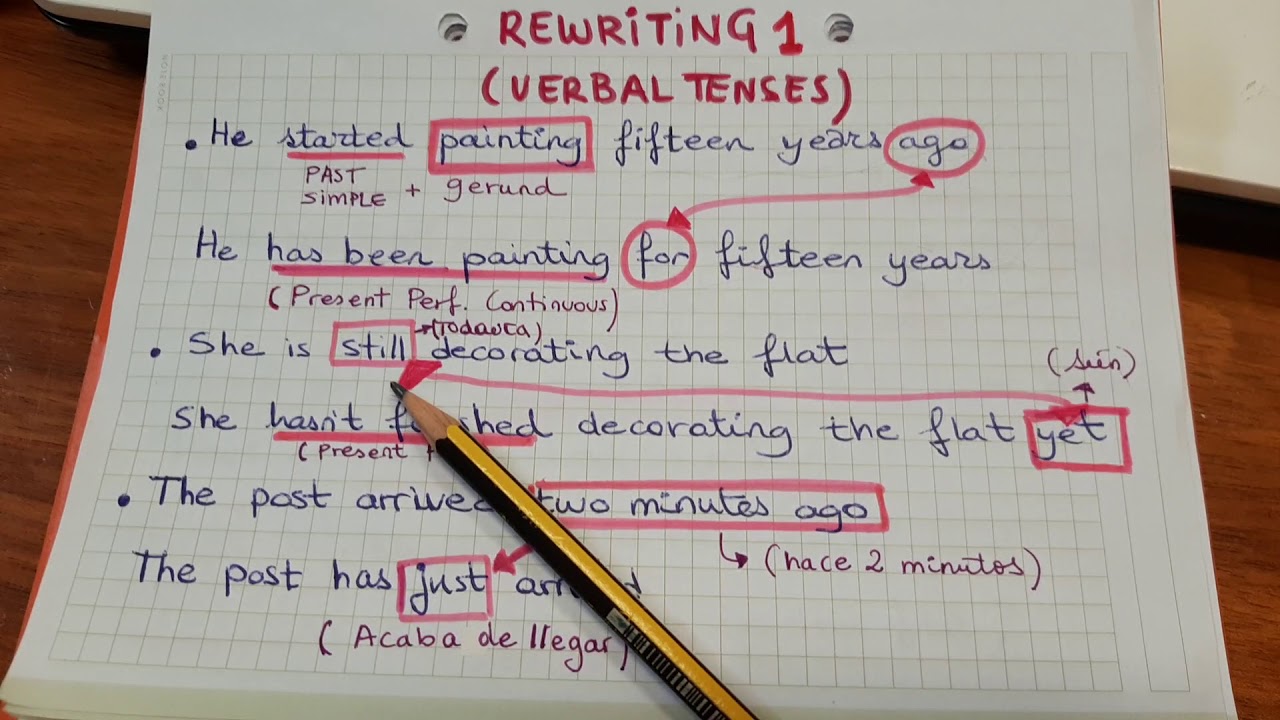 REWRITING 1
(VERBAL TENSES)
• He started painting fifteen years ago
PAST SIMPLE + gerund
He has been painting for fifteen years
(Present Perf. Continuous)
→(Todavía)
• She is still decorating the flat
(aún)
She hasn't decorating the flat yet
(Present +
• The post arrived two minutes ago
↳ (hace 2 minutos)
The post has just
(Acaba de llegar)